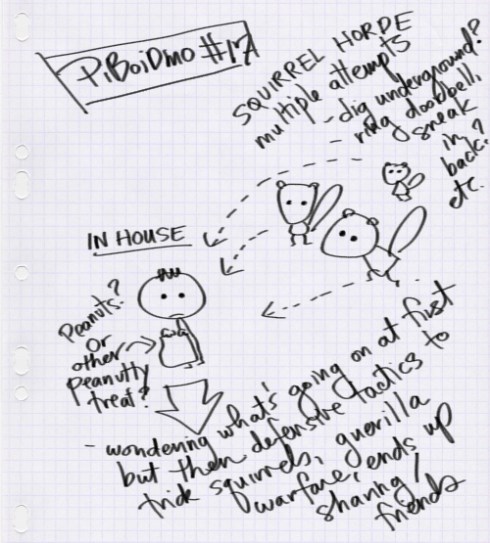 PiBoiDmo #17
SQUIRREL HORDE
multiple attempts
- dig underground?
- ring doorbell,
sneak
in
back?
etc.
IN HOUSE
Peanuts?
or
other
peanutty
treat?
- wondering what's going on at first
but then defensive tactics to
trick squirrels, guerilla
warfare, ends up
sharing/
friends